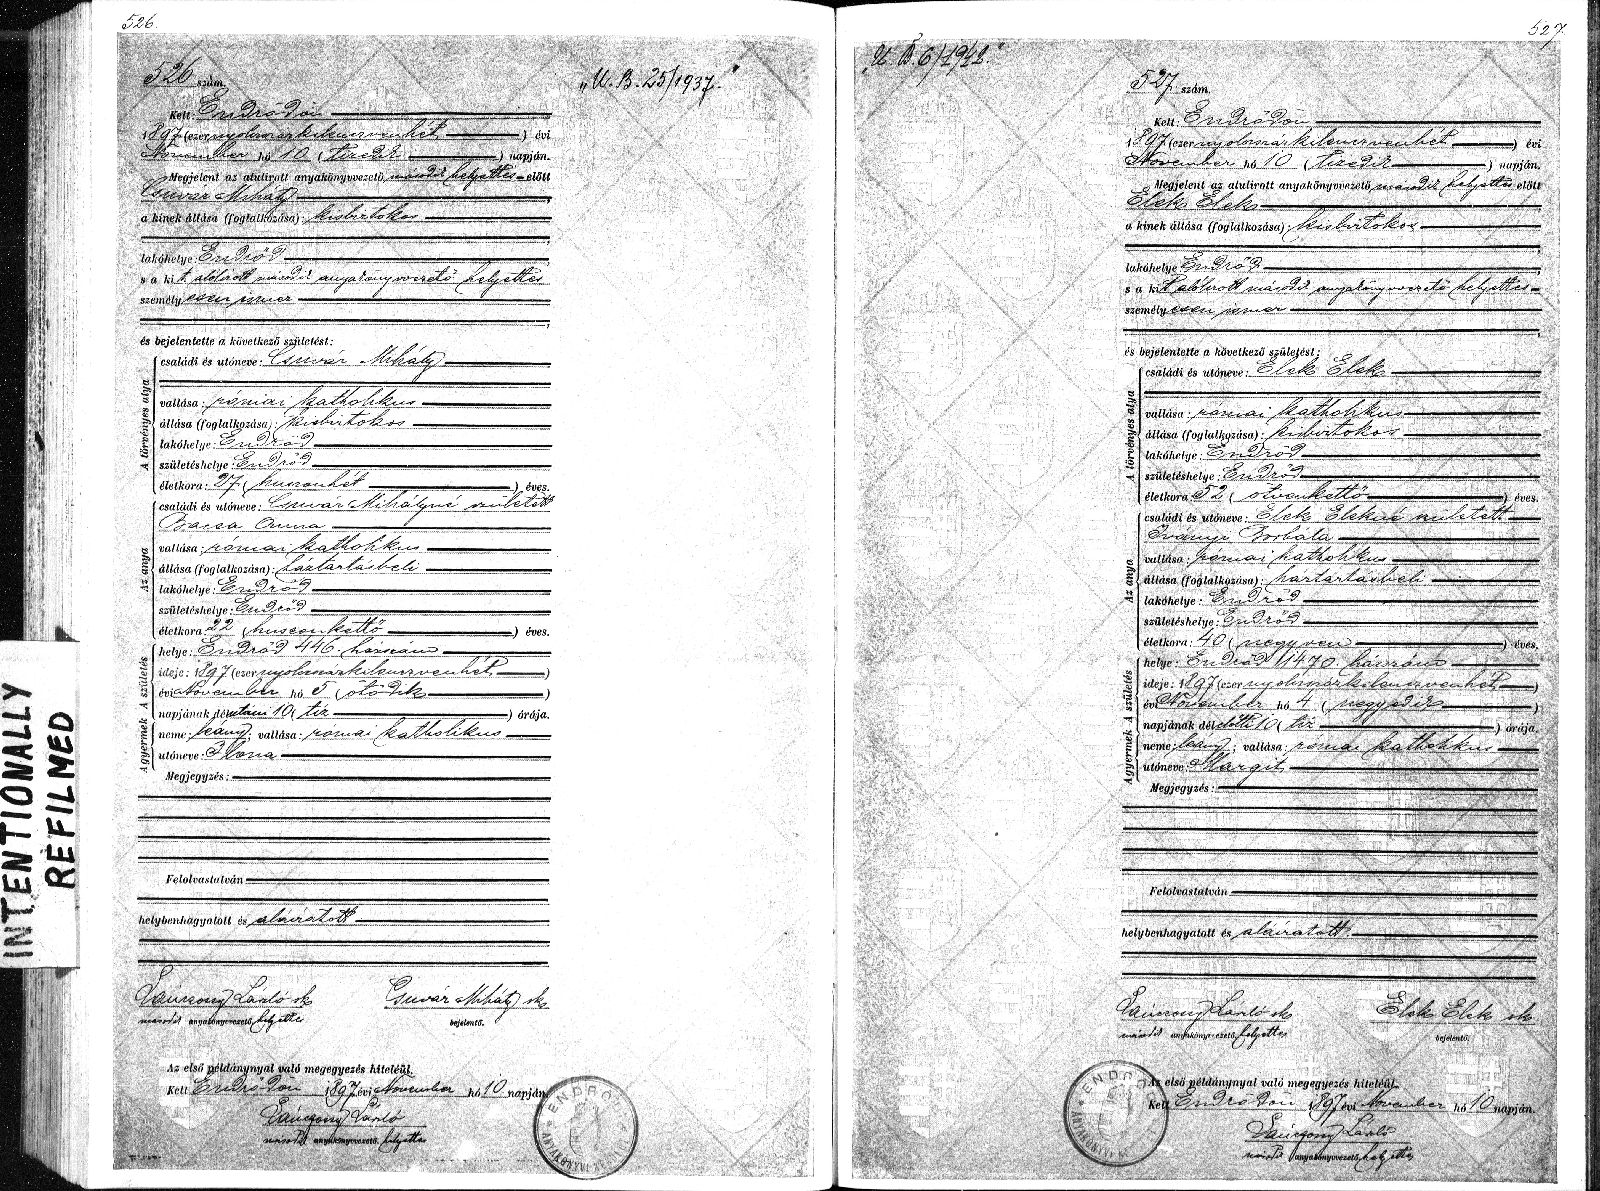 526.
526 szám.
„U. B. 25/1937."
Kelt: Endrődön
1897 (ezernyolcszázkilenczvenhét) évi
November hó 10 (tizedik) napján.
Megjelent az alulirott anyakönyvvezető, második helyettes előtt
Csuvár Mihály
a kinek állása (foglalkozása): kisbirtokos
lakóhelye Endrőd
s a kit alólirott második anyakönyvvezető helyettes
személyesen ismer
és bejelentette a következő születést:
A törvényes atya
családi és utóneve: Csuvár Mihály
vallása: római katholikus
állása (foglalkozása): kisbirtokos
lakóhelye: Endrőd
születéshelye: Endrőd
életkora: 27 (huszonhét) éves.
Az anya
családi és utóneve: Csuvár Mihályné született
Bacsa Anna
vallása: római katholikus
állása (foglalkozása): háztartásbeli
lakóhelye: Endrőd
születéshelye: Endrőd
életkora 22 (huszonkettő) éves.
A születés
helye: Endrőd 446. házszám
ideje: 1897 (ezernyolcszázkilenczvenhét)
évi November hó 5 (ötödik)
napjának délutáni 10 (tíz) órája.
A gyermek
neme: leány; vallása: római katholikus
utóneve: Ilona
Megjegyzés:
Felolvastatván
helybenhagyatott és aláiratott
László sk
Csuvár Mihály sk
második anyakönyvvezető, helyettes
bejelentő.
Az első példánynyal való megegyezés hiteléül.
Kelt Endrődön 1897 évi November hó 10 napján
László
második anyakönyvvezető, helyettes
ENDRŐD
INTENTIONALLY
REFILMED
527.
„U. B. 6/1942."
527 szám.
Kelt: Endrődön
1897 (ezernyolcszázkilenczvenhét) évi
November hó 10 (tizedik) napján.
Megjelent az alulirott anyakönyvvezető, második helyettes előtt
Elek Elek
a kinek állása (foglalkozása): kisbirtokos
lakóhelye Endrőd
s a kit alólirott második anyakönyvvezető helyettes
személyesen ismer
és bejelentette a következő születést:
A törvényes atya
családi és utóneve: Elek Elek
vallása: római katholikus
állása (foglalkozása): kisbirtokos
lakóhelye: Endrőd
születéshelye: Endrőd
életkora 52 (ötvenkettő) éves.
Az anya
családi és utóneve: Elek Elekné született
Iványi Borbála
vallása: római katholikus
állása (foglalkozása): háztartásbeli
lakóhelye: Endrőd
születéshelye: Endrőd
életkora: 40 (negyven) éves.
A születés
helye: Endrőd 1470. házszám
ideje: 1897 (ezernyolcszázkilenczvenhét)
évi November hó 4 (negyedik)
napjának délelőtti 10 (tíz) órája.
A gyermek
neme: leány; vallása: római katholikus
utóneve: Margit
Megjegyzés:
Felolvastatván
helybenhagyatott és aláiratott.
László sk
Elek Elek sk
második anyakönyvvezető, helyettes
bejelentő.
Az első példánynyal való megegyezés hiteléül.
Kelt Endrődön 1897 évi November hó 10 napján.
László
második anyakönyvvezető, helyettes
ENDRŐD